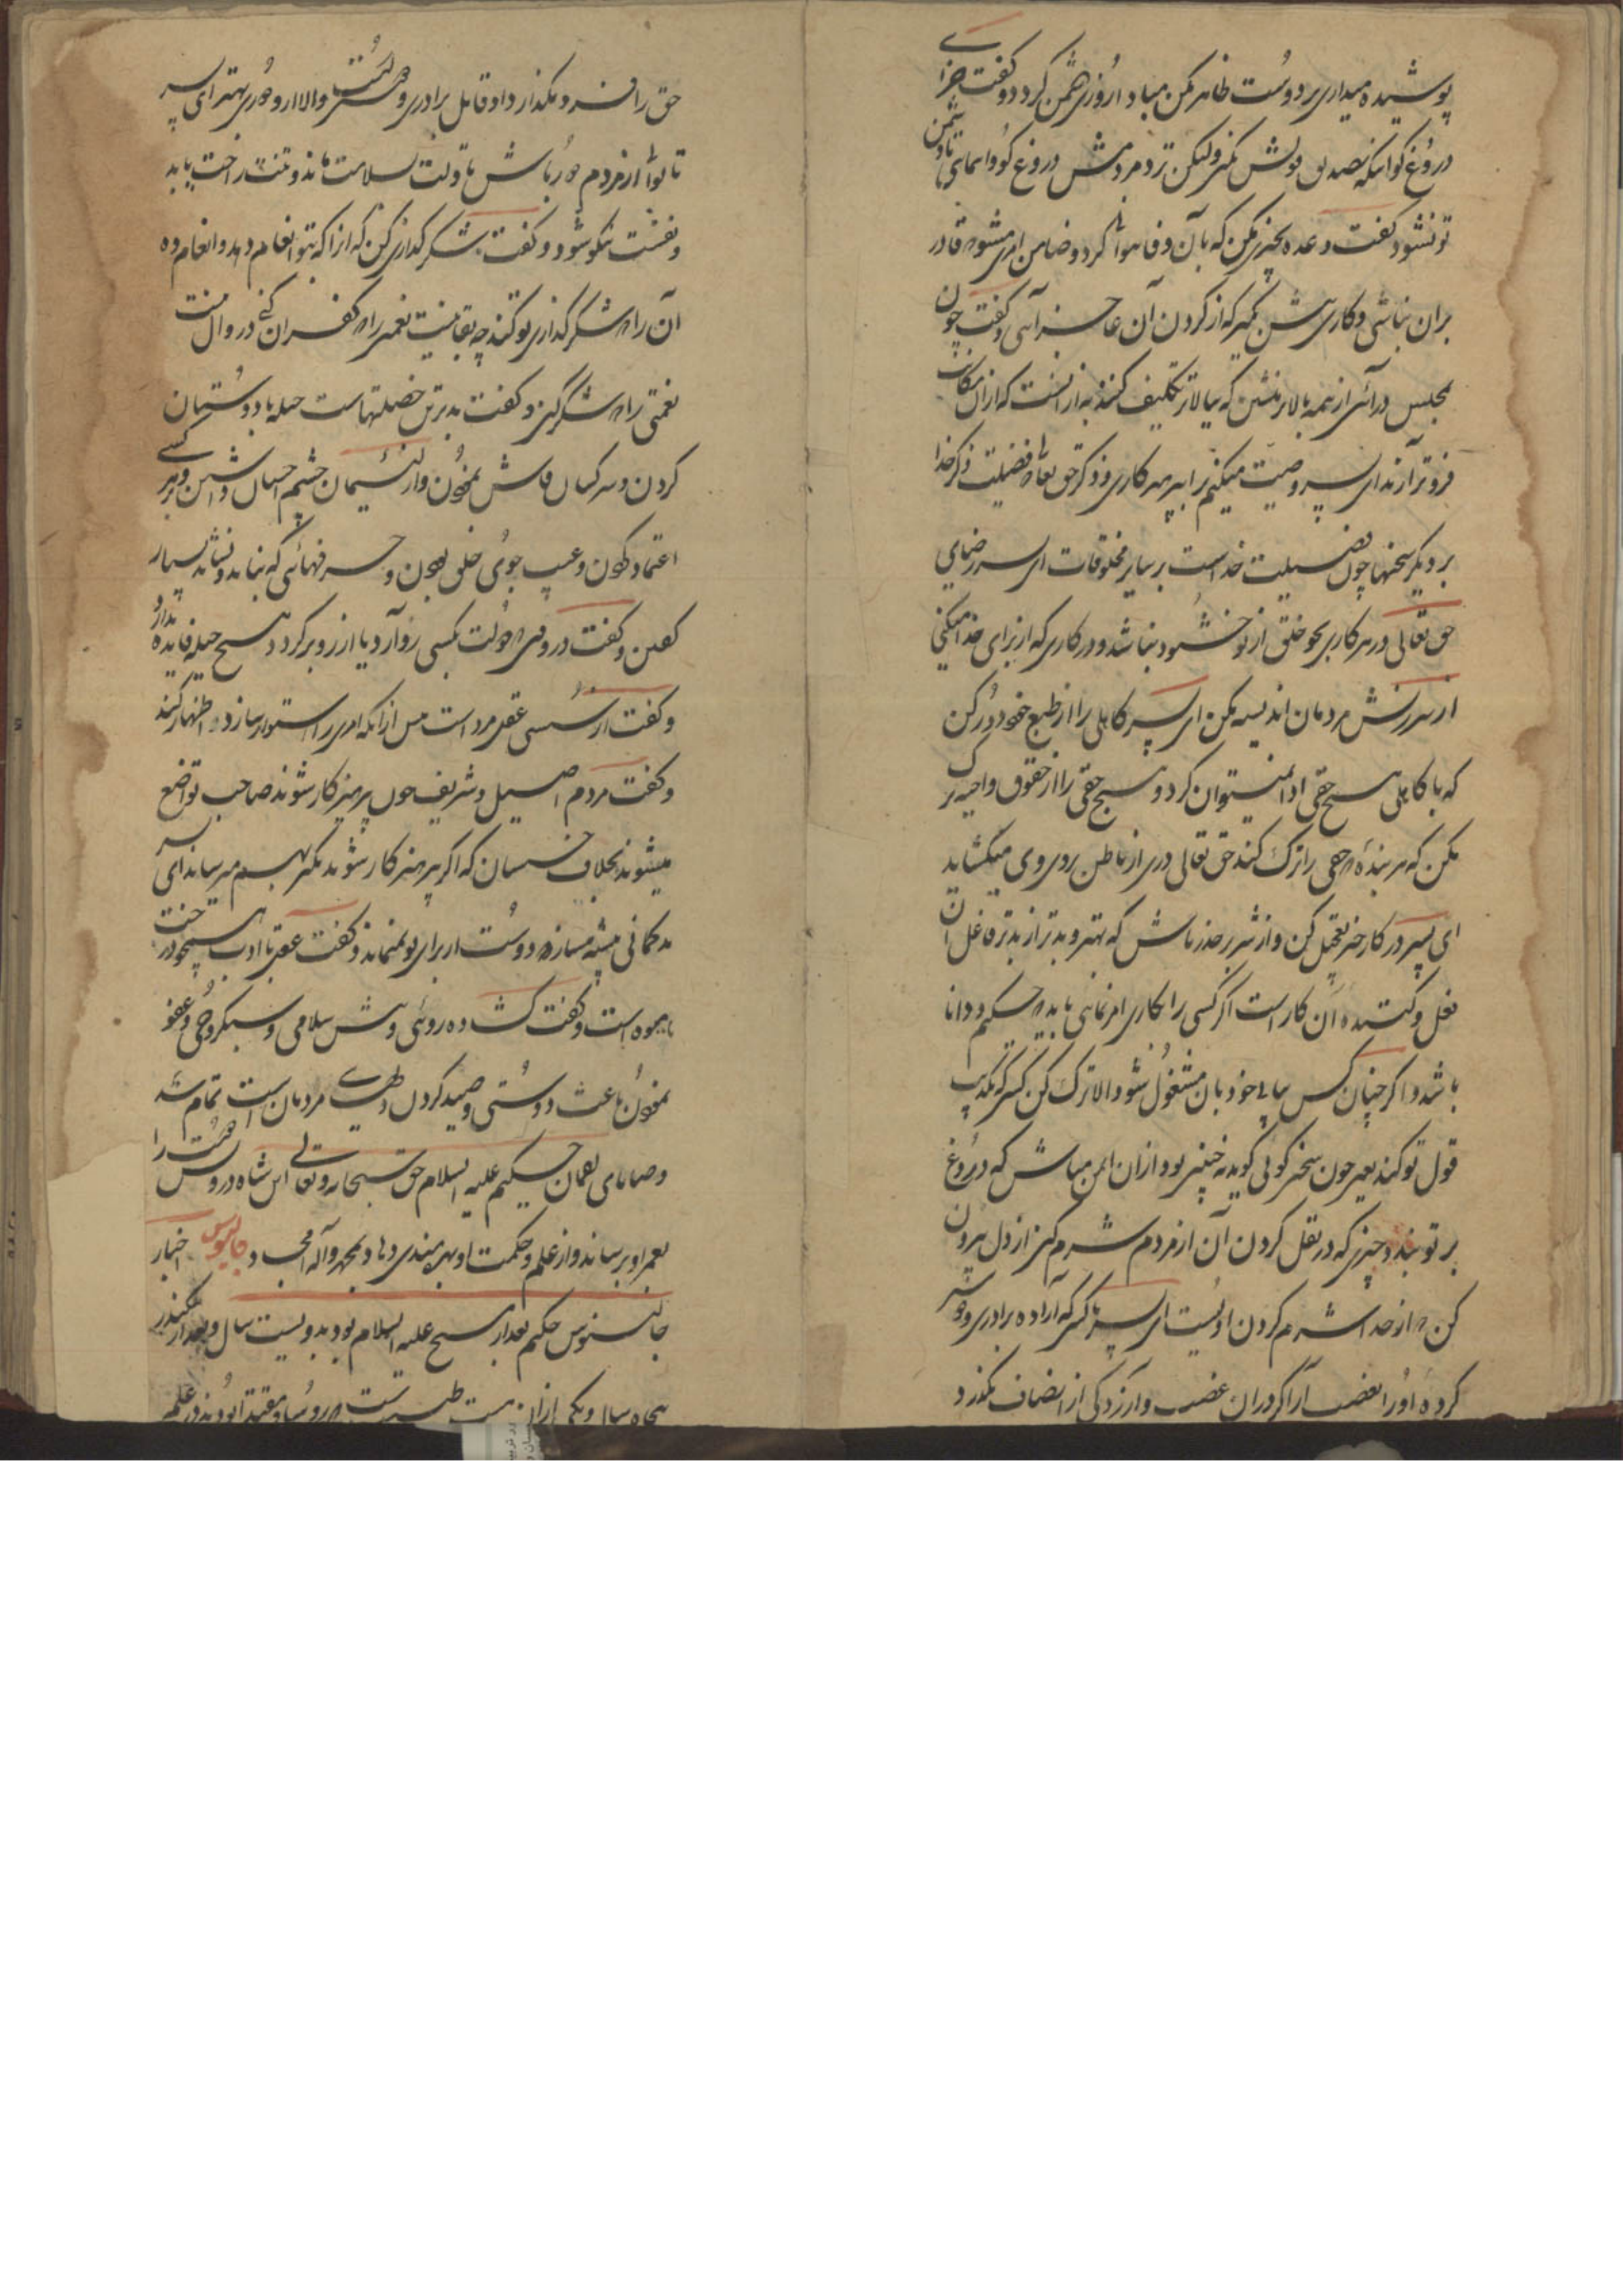 پوشیده میداری بر دوست ظاهر مکن مبادا روزی دشمن کردد و کفت جزای
دروغ کو آنکه تصدیق قولش نکنی ولیکن نزد مردمش دروغ کو وا منمای تا دشمن
تو نشود کفت وعده بچیزی مکن که بآن وفا نتوانی کرد و ضامن امری مشو که قادر
بران نباشی و کاری پیش مکیر که از کردن آن عاجز آئی و کفت چون
بمجلس درآئی از همه بالاتر منشین که ببالاتر تکلیف کنند به از آنست که ازان مکانت
فروتر آرند ای پسر وصیت میکنم ترا بپرهیزکاری و ذکر حق تعالی که فضیلت ذکر خدا
بر دیکر سخنها چون فضیلت خداست بر سایر مخلوقات ای پسر رضای
حق تعالی در هر کاری بجو خلق از تو خشنود نباشد و در کاری که از برای خدا میکنی
از سرزنش مردمان اندیشه مکن ای پسر کاهلی را از طبع خود دور کن
که با کاهلی هیچ حقی ادا نمیتوان کرد و هیچ حقی را از حقوق واجبه ترک
مکن که هر بنده که حقی را ترک کند حق تعالی دری از باطن بر روی وی میکشاید
ای پسر در کار خیر تعجیل کن و از شر بر حذر باش که بهتر و بدتر از بد تر فاعل آن
فعل و کننده آن کار است اکر کسی را بکاری امر نمائی باید که حکیم و دانا
باشد و اکر چنان کس نیابی خود بآن مشغول شو و الا ترک کن کسی که تکذیب
قول تو کند یعنی چون سخن کوئی کوید نه چنین بود ازان ایمن مباش که دروغ
بر تو بندد چیزی که در نقل کردن آن از مردم شرم کنی از دل بیرون
کن که از خدا شرم کردن اولیست ای پسر با کسی که اراده برادری و خویشی
کرده او را بغضب آر اکر دران غضب و آزردکی از انصاف نکذرد
حق را فرو نکذارد او قابل برادری و دوستیست و الا ازو دوری بهتر ای پسر
تا توانی از مردم دور باش تا دلت بسلامت ماند و تنت راحت یابد
و نفست نیکو شود و کفت شکرکذاری کن که ازانکه بتو انعام دهد و انعام ده
آن را که شکرکذاری تو کند چه بقا نیست نعمتی را که کفران کنی و زوال نیست
نعمتی را که شکر کنی و کفت بدترین خصلتهاست حیله با دوستان
کردن و سر کسان فاش نمودن و از لئیمان چشم احسان داشتن و بر هر کسی
اعتماد کردن و عیب جوئی خلق نمودن و حرفهائی که نباید و نشاید بسیار
کفتن و کفت در وقتی که دولت بکسی رو آرد یا ازو رو برکردد هیچ حیله فایده ندارد
و کفت از سستی عقل مرد است پیش ازانکه امری را استوار سازد اظهار کند
و کفت مردم اصیل و شریف چون پرهیزکار شوند صاحب تواضع
میشوند بخلاف خسیسان که اکر پرهیزکار شوند تکبر بهم میرسانند ای پسر
بدکمانی پیشه مساز که دوست از برای تو نمیماند و کفت عقل با ادب همچو درخت
با میوه است و کفت کشاده روئی و پیش سلامی و سبکروحی و عفو
نمودن باعث دوستی و صید کردن دلهای مردمان است تمام شد
وصایای لقمان حکیم علیه السلام حق سبحانه و تعالی این شاه درویش دوست را
بعمر او برساند و از علم و حکمت او بهره‌مندی دهاد بمحمد و آله الامجاد جالینوس اخبار
جالینوس حکیم بعد از مسیح علیه السلام بود بدویست سال و بعد از سکندر